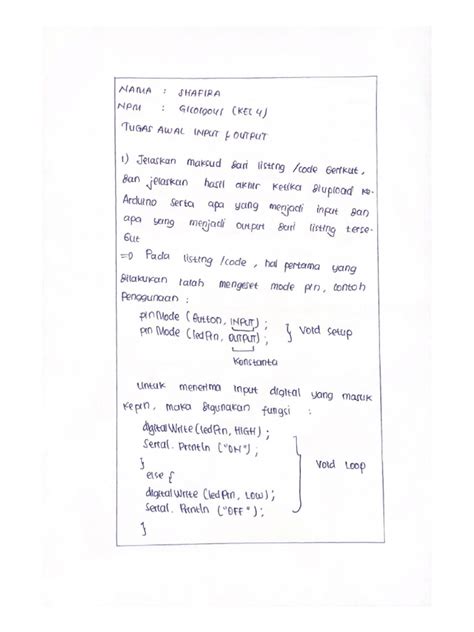 NAMA : SHAFIRA
NPM : G1C019041 (KEL 4)
TUGAS AWAL INPUT & OUTPUT
1) Jelaskan maksud dari listing /code berikut,
dan jelaskan hasil akhir ketika diupload ke
Arduino serta apa yang menjadi input dan
apa yang menjadi output dari listing terse-
but
=> Pada listing /code, hal pertama yang
dilakukan ialah mengeset mode pin, contoh
Penggunaan :
pinMode (button, INPUT) ;
pinMode (ledPin, OUTPUT) ; } Void Setup
Konstanta
Untuk menerima input digital yang masuk
ke pin, maka digunakan fungsi :
digitalWrite (ledPin, HIGH) ;
Serial. Println ("ON") ;
}
else {
digitalWrite (ledPin, LOW) ;
Serial. Println ("OFF") ;
}
} Void Loop